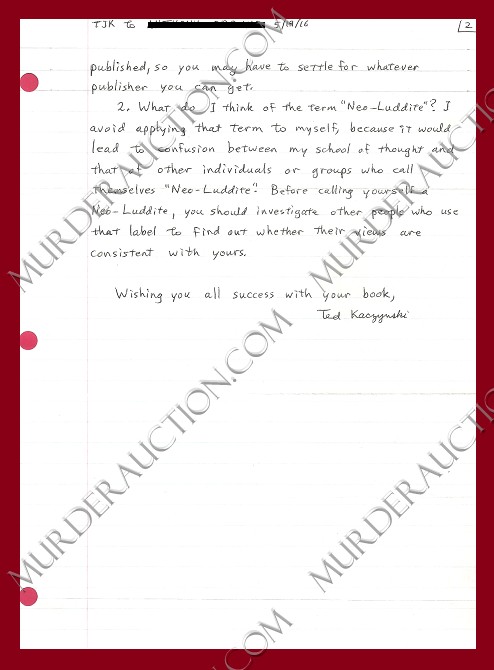 TJK to 5/19/16 2
published, so you may have to settle for whatever
publisher you can get.
2. What do I think of the term "Neo-Luddite"? I
avoid applying that term to myself, because it would
lead to confusion between my school of thought and
that of other individuals or groups who call
themselves "Neo-Luddite." Before calling yourself a
Neo-Luddite, you should investigate other people who use
that label to find out whether their views are
consistent with yours.
Wishing you all success with your book,
Ted Kaczynski
MURDERAUCTION.COM
MURDERAUCTION.COM
MURDERAUCTION.COM
MURDERAUCTION.COM
MURDERAUCTION.COM
MURDERAUCTION.COM